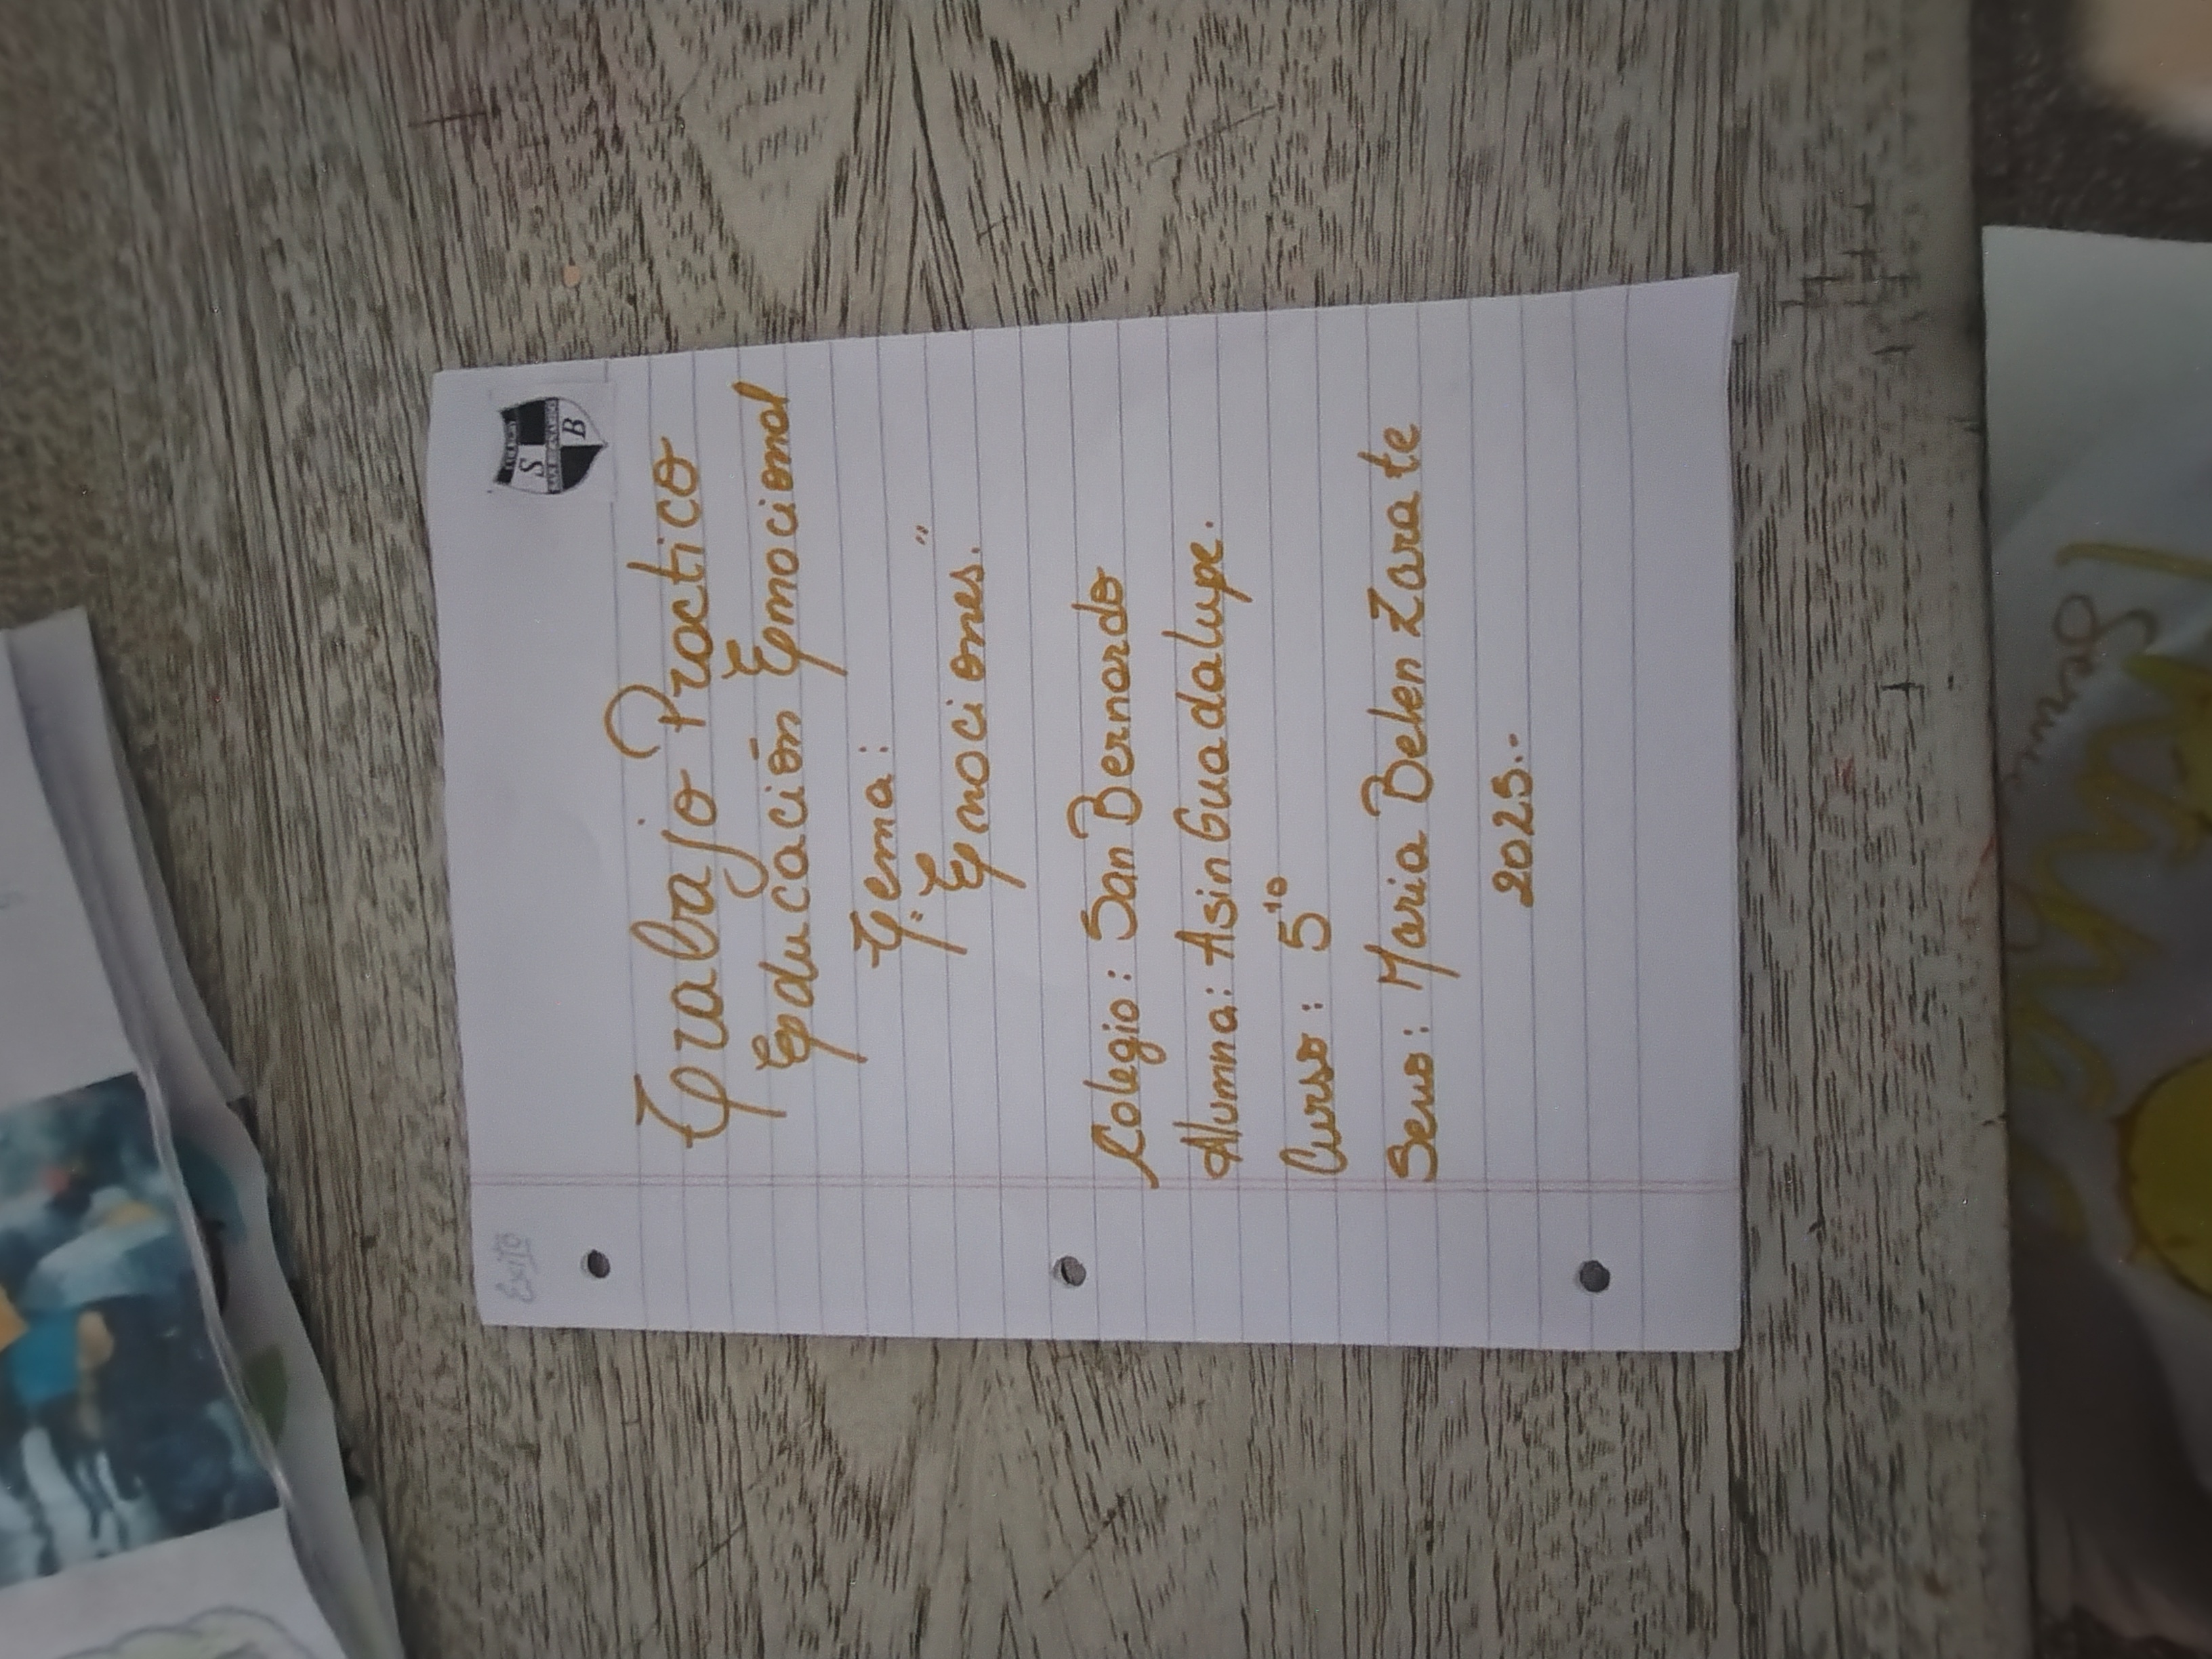 Exito
S
B
Trabajo Práctico
Educación Emocional
Tema:
"Emociones."
Colegio: San Bernardo
Alumna: Asin Guadalupe.
Curso: 5to
Seño: Maria Belen Zarate
2025.-